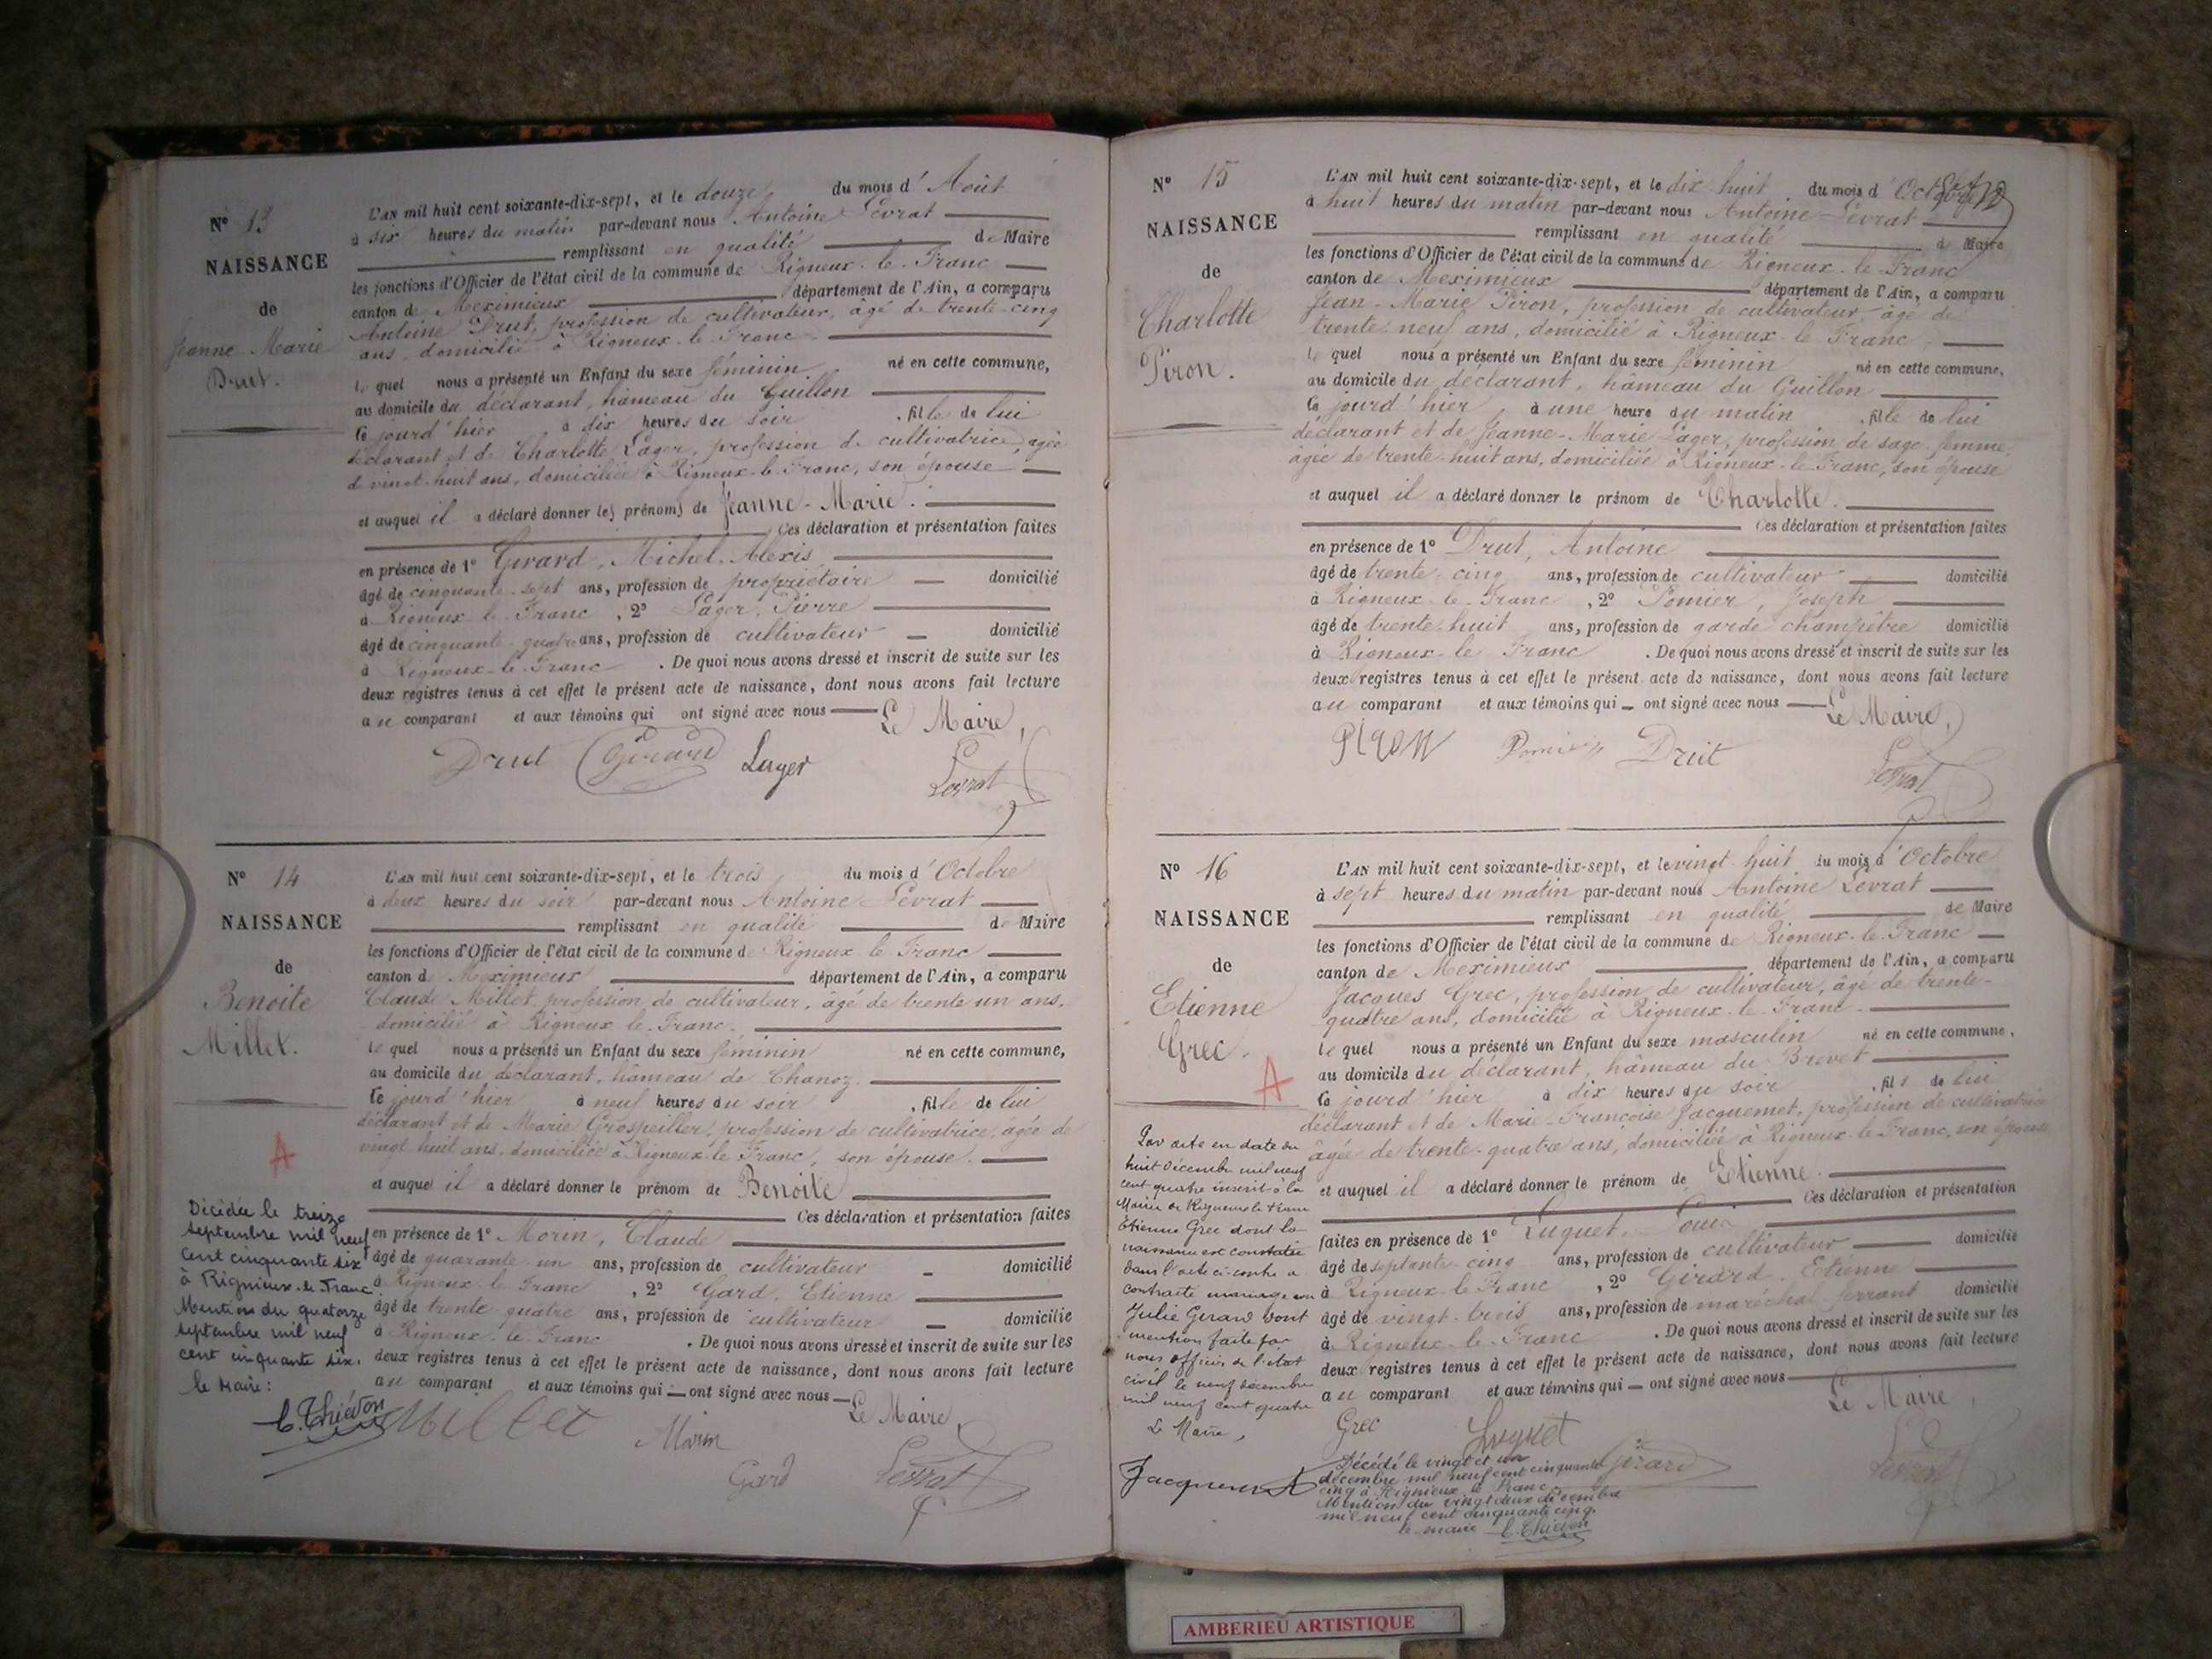 N° 13
NAISSANCE
de
Jeanne Marie
Drut.
L'AN mil huit cent soixante-dix-sept, et le douze du mois d'Août
à six heures du matin par-devant nous Antoine Levrat
remplissant en qualité de Maire
les fonctions d'Officier de l'état civil de la commune de Rigneux-le-Franc
canton de Meximieux département de l'Ain, a comparu
Antoine Drut, profession de cultivateur, âgé de trente-cinq
ans, domicilié à Rigneux-le-Franc
le quel nous a présenté un Enfant du sexe féminin né en cette commune,
au domicile du déclarant, hâmeau du Guillon
Ce jourd'hier à dix heures du soir, fille de lui
déclarant et de Charlotte Lager, profession de cultivatrice, agée
de vingt-huit ans, domiciliée à Rigneux-le-Franc, son épouse,
et auquel il a déclaré donner les prénoms de Jeanne-Marie.
Ces déclaration et présentation faites
en présence de 1° Girard, Michel-Alexis
âgé de cinquante-sept ans, profession de propriétaire domicilié
à Rigneux-le-Franc, 2° Lager, Pierre
âgé de cinquante-quatre ans, profession de cultivateur domicilié
à Rigneux-le-Franc. De quoi nous avons dressé et inscrit de suite sur les
deux registres tenus à cet effet le présent acte de naissance, dont nous avons fait lecture
au comparant et aux témoins qui ont signé avec nous Le Maire,
Drut Girard Lager Levrat
N° 14
NAISSANCE
de
Benoite
Millet.
A
L'AN mil huit cent soixante-dix-sept, et le trois du mois d'Octobre
à deux heures du soir par-devant nous Antoine Levrat
remplissant en qualité de Maire
les fonctions d'Officier de l'état civil de la commune de Rigneux-le-Franc
canton de Meximieux département de l'Ain, a comparu
Claude Millet, profession de cultivateur, âgé de trente un ans,
domicilié à Rigneux-le-Franc.
le quel nous a présenté un Enfant du sexe féminin né en cette commune,
au domicile du déclarant, hâmeau de Chanoz.
Ce jourd'hier à neuf heures du soir, fille de lui
déclarant et de Marie Grospeiller, profession de cultivatrice, agée de
vingt huit ans, domiciliée à Rigneux-le-Franc, son épouse.
et auquel il a déclaré donner le prénom de Benoite
Ces déclaration et présentation faites
en présence de 1° Morin, Claude
âgé de quarante-un ans, profession de cultivateur domicilié
à Rigneux-le-Franc, 2° Gard, Etienne
âgé de trente-quatre ans, profession de cultivateur domicilié
à Rigneux-le-Franc. De quoi nous avons dressé et inscrit de suite sur les
deux registres tenus à cet effet le présent acte de naissance, dont nous avons fait lecture
au comparant et aux témoins qui ont signé avec nous Le Maire,
Décédée le treize
septembre mil neuf
cent cinquante six
à Rignieux-le-Franc.
Mention du quatorze
septembre mil neuf
cent cinquante six.
le Maire:
C. Thiévon
Millet Morin Gard Levrat
N° 15
NAISSANCE
de
Charlotte
Piron.
L'AN mil huit cent soixante-dix-sept, et le dix-huit du mois d'Octobre
à huit heures du matin par-devant nous Antoine Levrat
remplissant en qualité de Maire
les fonctions d'Officier de l'état civil de la commune de Rigneux-le-Franc
canton de Meximieux département de l'Ain, a comparu
Jean-Marie Piron, profession de cultivateur âgé de
trente-neuf ans, domicilié à Rigneux-le-Franc,
le quel nous a présenté un Enfant du sexe féminin né en cette commune,
au domicile du déclarant, hâmeau du Guillon
Ce jourd'hier, à une heure du matin, fille de lui
déclarant et de Jeanne-Marie Lager, profession de sage-femme,
agée de trente-huit ans, domiciliée à Rigneux-le-Franc, son épouse
et auquel il a déclaré donner le prénom de Charlotte.
Ces déclaration et présentation faites
en présence de 1° Drut, Antoine
âgé de trente-cinq ans, profession de cultivateur domicilié
à Rigneux-le-Franc, 2° Pomier, Joseph
âgé de trente-huit ans, profession de garde champêtre domicilié
à Rigneux-le-Franc. De quoi nous avons dressé et inscrit de suite sur les
deux registres tenus à cet effet le présent acte de naissance, dont nous avons fait lecture
au comparant et aux témoins qui ont signé avec nous Le Maire,
Piron Pomier Drut Levrat
N° 16
NAISSANCE
de
Etienne
Grec.
A
L'AN mil huit cent soixante-dix-sept, et le vingt-huit du mois d'Octobre
à sept heures du matin par-devant nous Antoine Levrat
remplissant en qualité de Maire
les fonctions d'Officier de l'état civil de la commune de Rigneux-le-Franc
canton de Meximieux département de l'Ain, a comparu
Jacques Grec, profession de cultivateur, âgé de trente-
quatre ans, domicilié à Rigneux-le-Franc
le quel nous a présenté un Enfant du sexe masculin né en cette commune,
au domicile du déclarant, hâmeau du Brevet
Ce jourd'hier à dix heures du soir, fils de lui
déclarant et de Marie-Françoise Jacquemet, profession de cultivatrice
âgée de trente-quatre ans, domiciliée à Rigneux-le-Franc, son épouse
et auquel il a déclaré donner le prénom de Etienne.
Ces déclaration et présentation
faites en présence de 1° Luquet, Louis
âgé de septante-cinq ans, profession de cultivateur domicilié
à Rigneux-le-Franc, 2° Girard, Etienne
âgé de vingt-trois ans, profession de maréchal ferrant domicilié
à Rigneux-le-Franc. De quoi nous avons dressé et inscrit de suite sur les
deux registres tenus à cet effet le présent acte de naissance, dont nous avons fait lecture
au comparant et aux témoins qui ont signé avec nous
Le Maire,
Par acte en date du
huit décembre mil neuf
cent quatre inscrit à la
Mairie de Rigneux le Franc
Etienne Grec dont la
naissance est constatée
dans l'acte ci-contre a
contracté mariage avec
Julie Girard dont
mention faite par
nous officier de l'état
civil le neuf décembre
mil neuf cent quatre
Le Maire,
Jacquemet
Grec Luquet Girard Levrat
Décédé le vingt et un
décembre mil neuf cent cinquante
cinq à Rignieux le Franc
Mention du vingt deux décembre
mil neuf cent cinquante cinq.
le maire C. Thiévon
AMBERIEU ARTISTIQUE